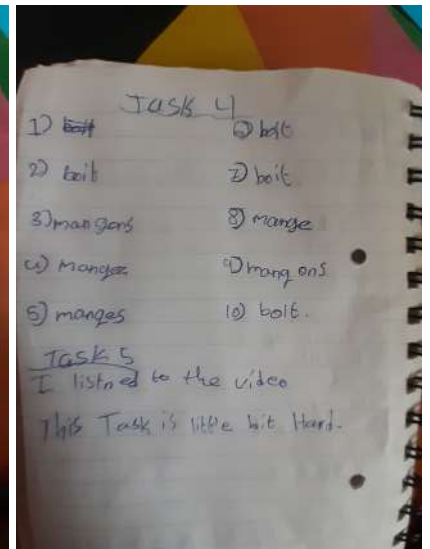 Task 4
1) boit
2) boit
3) mangons
4) Mangez
5) manges
6) boit
7) boit.
8) mange
9) mangons
10) boit.
Task 5
I listned to the video
This Task is little bit Hard.